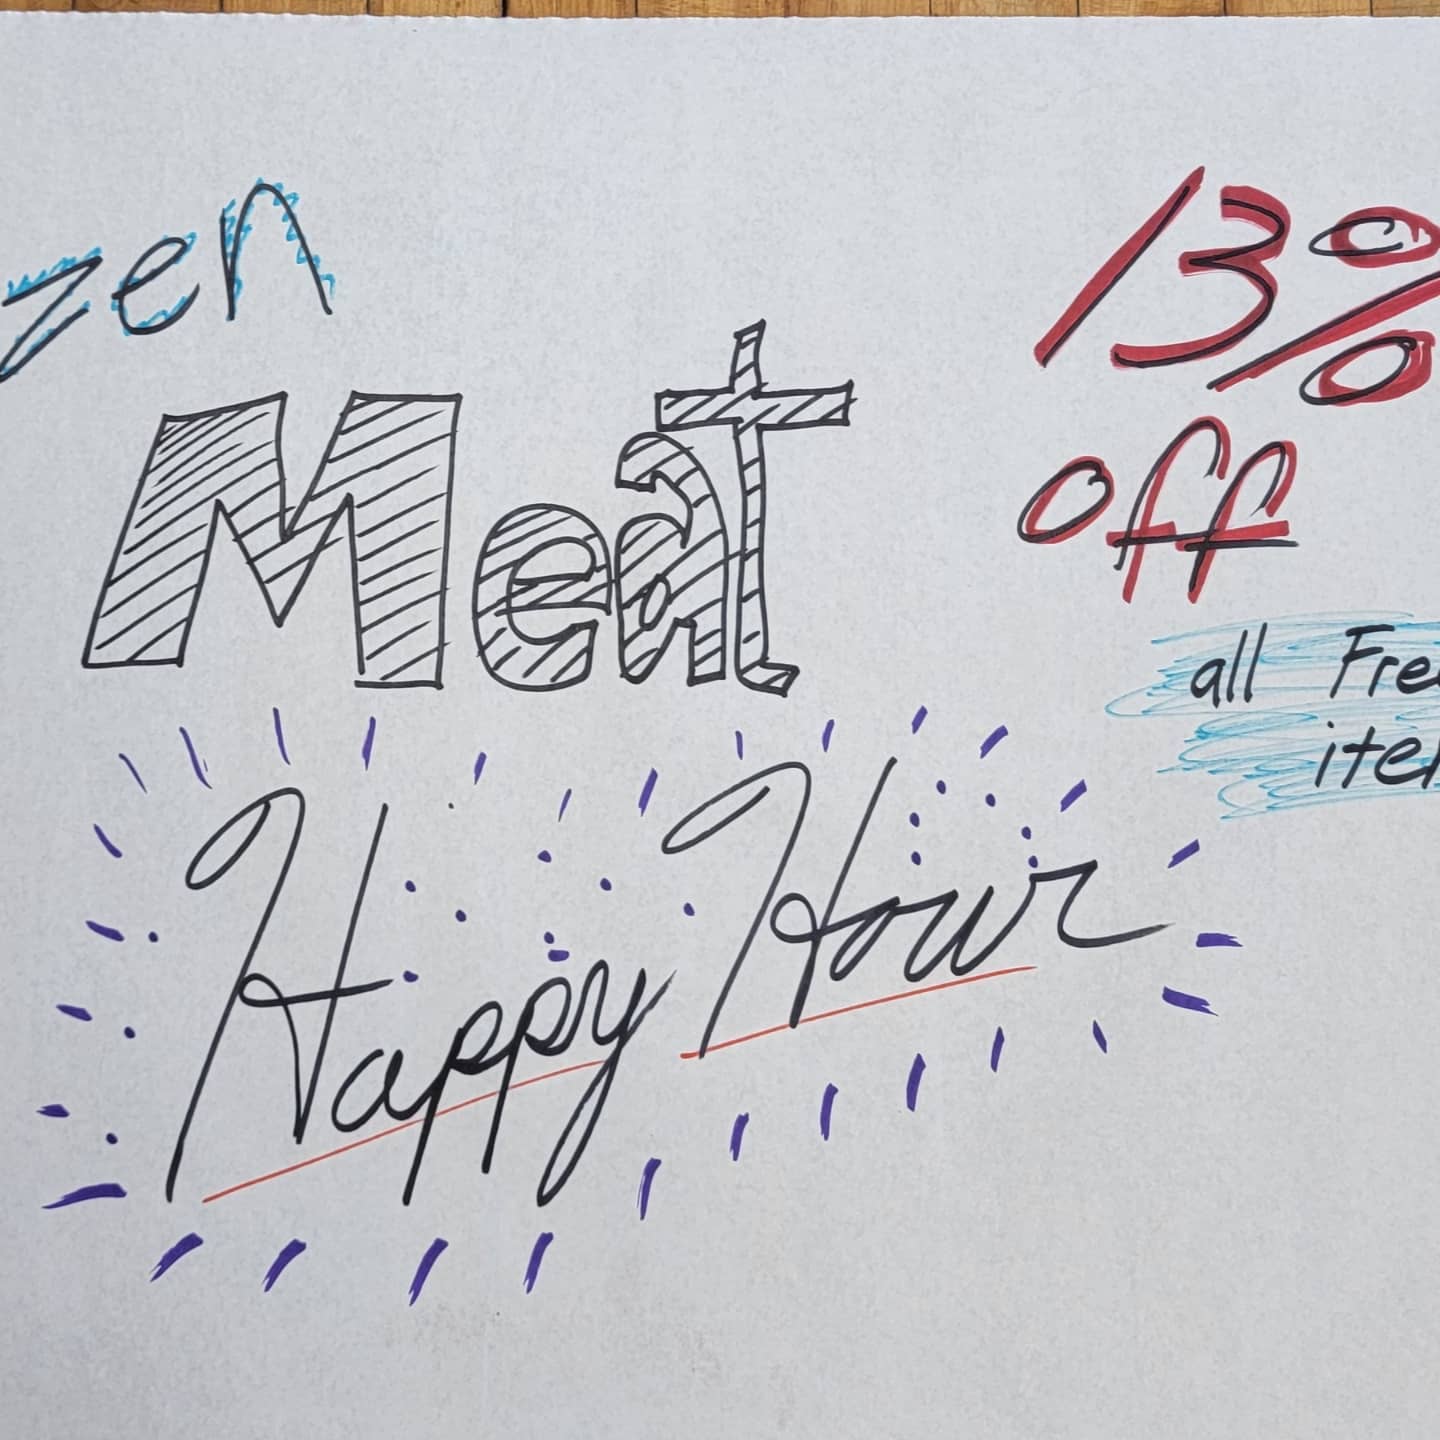 zen
Meat
Happy Hour
13%
off
all Fre
ite